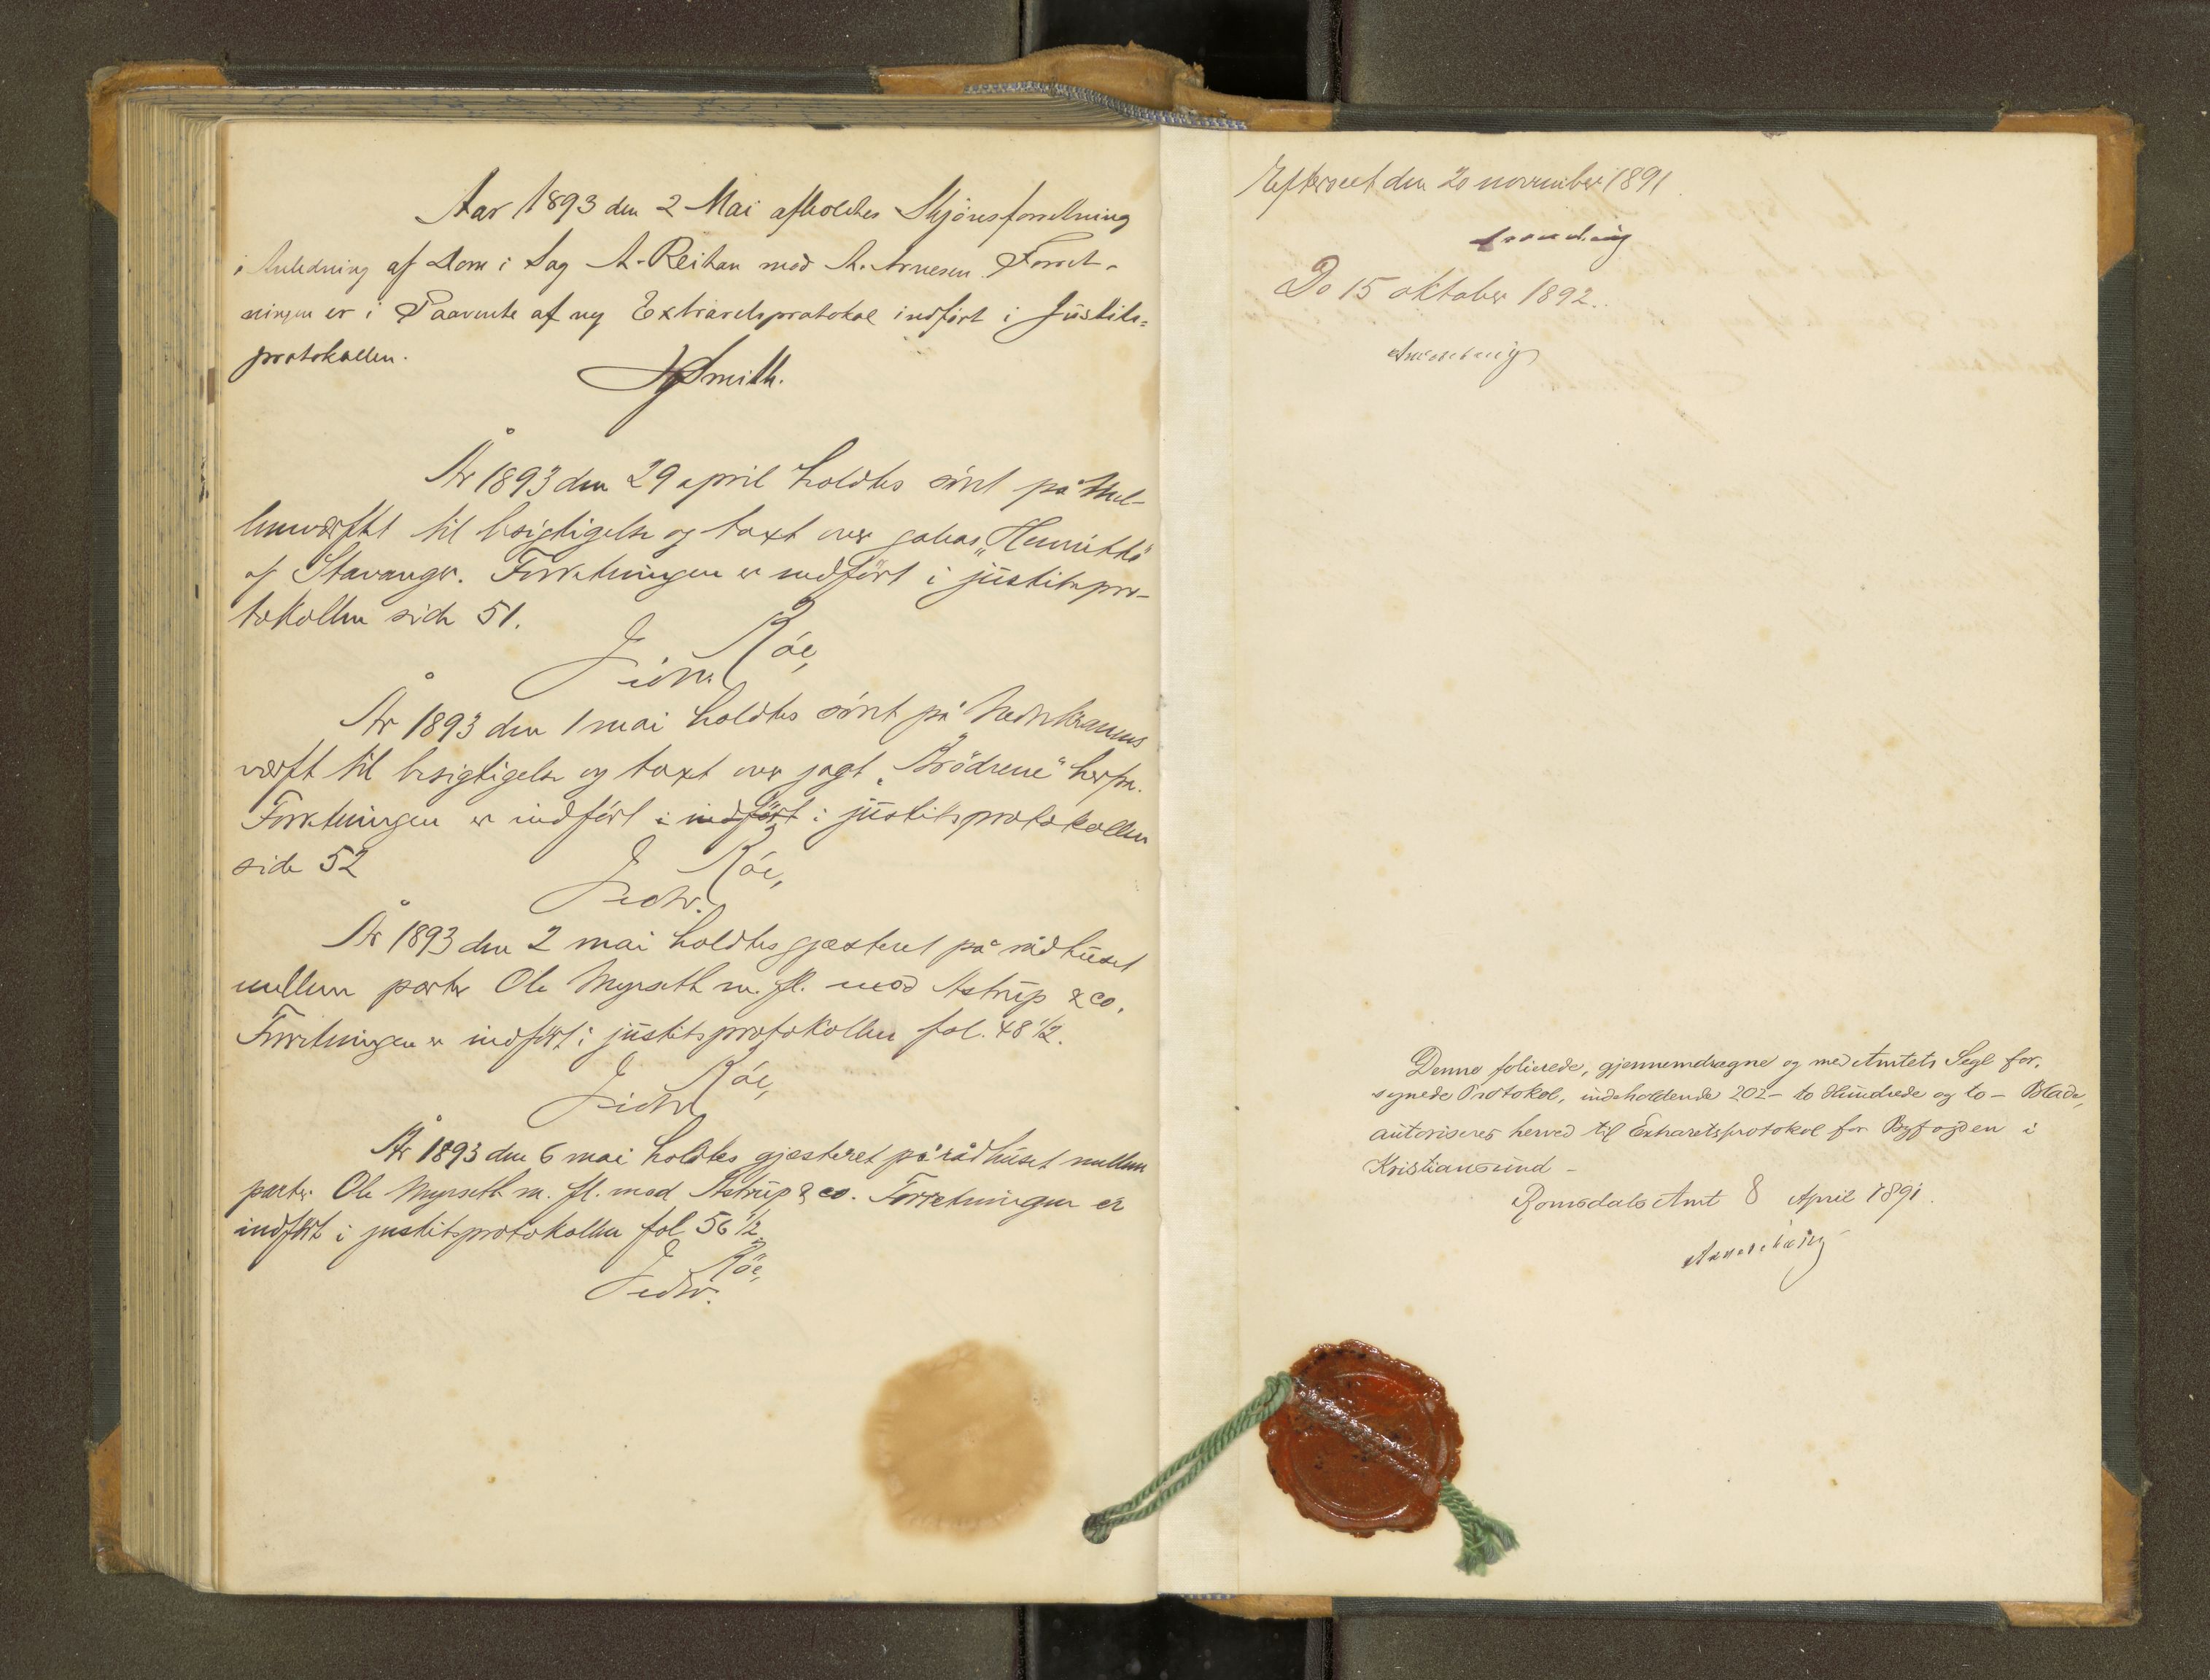 Aar 1893 den 2 Mai afholdtes Skjönsforretning
i Anledning af Dom i Sag A. Reitan mod A. Arnesen. Forret-
ningen er i Paavente af ny Extraretsprotokol indfört i Justits-
protokollen.
Smith.
År 1893 den 29 april holdtes rört på
til besigtigelse og taxt over galeas „Henriette"
af Stavanger. Forretningen er indfört i justitspro-
tokollen side 51.
J. Röe,
År 1893 den 1 mai holdtes på
værft til besigtigelse og taxt over jagt „Brödrene" herfra.
Forretningen er indfört i indfört i justitsprotokollen
side 52
J. Röe,
År 1893 den 2 mai holdtes gjæsteret på rådhuset
mellem parter Ole Myrseth m. fl. mod Astrup & co.
Forretningen er indfört i justitsprotokollen fol. 48 1/2.
J. Röe,
År 1893 den 6 mai holdtes gjæsteret på rådhuset mellem
parter Ole Myrseth m. fl. mod Astrup & co. Forretningen er
indfört i justitsprotokollen fol 56 1/2
J. Röe,
Efterseet den 20 november 1891
Do 15 oktober 1892.
Denne folierede, gjennemdragne og med Amtets Segl for-
synede Protokol, indeholdende 202 - to Hundrede og to - Blade,
autoriseres herved til Extraretsprotokol for Byfogden i
Kristiansund -
Romsdals Amt 8 April 1891.